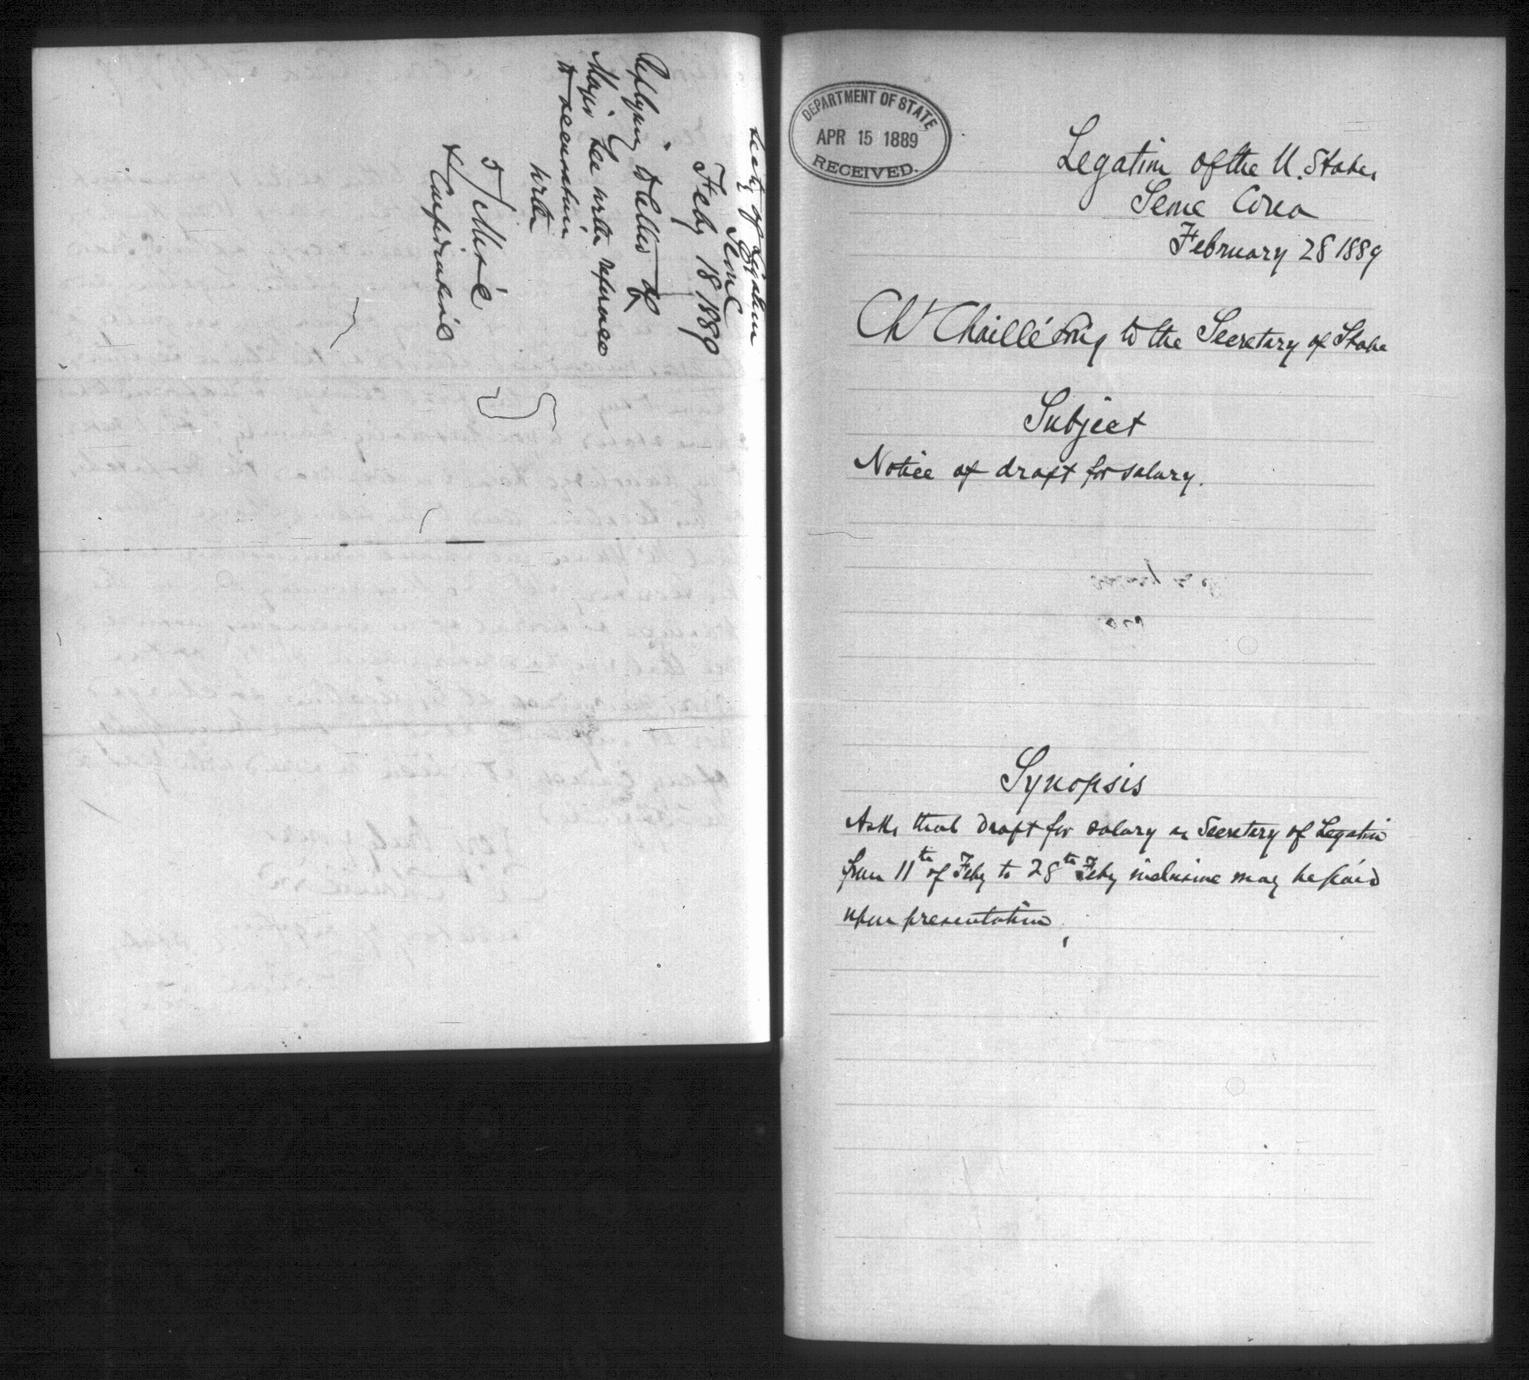 Secty of Legation
Seoul
Feby 18 1889
Replying to letter of
Major Lee with reference
to accusation
5/Misc
& Confidential
DEPARTMENT OF STATE
APR 15 1889
RECEIVED.
Legation of the U. States
Seoul Corea
February 28 1889
Chs Chaillé Long to the Secretary of State
Subject
Notice of draft for salary.
Synopsis
Asks that draft for salary as Secretary of Legation
from 11th of Feby to 28th Feby inclusive may be paid
upon presentation.